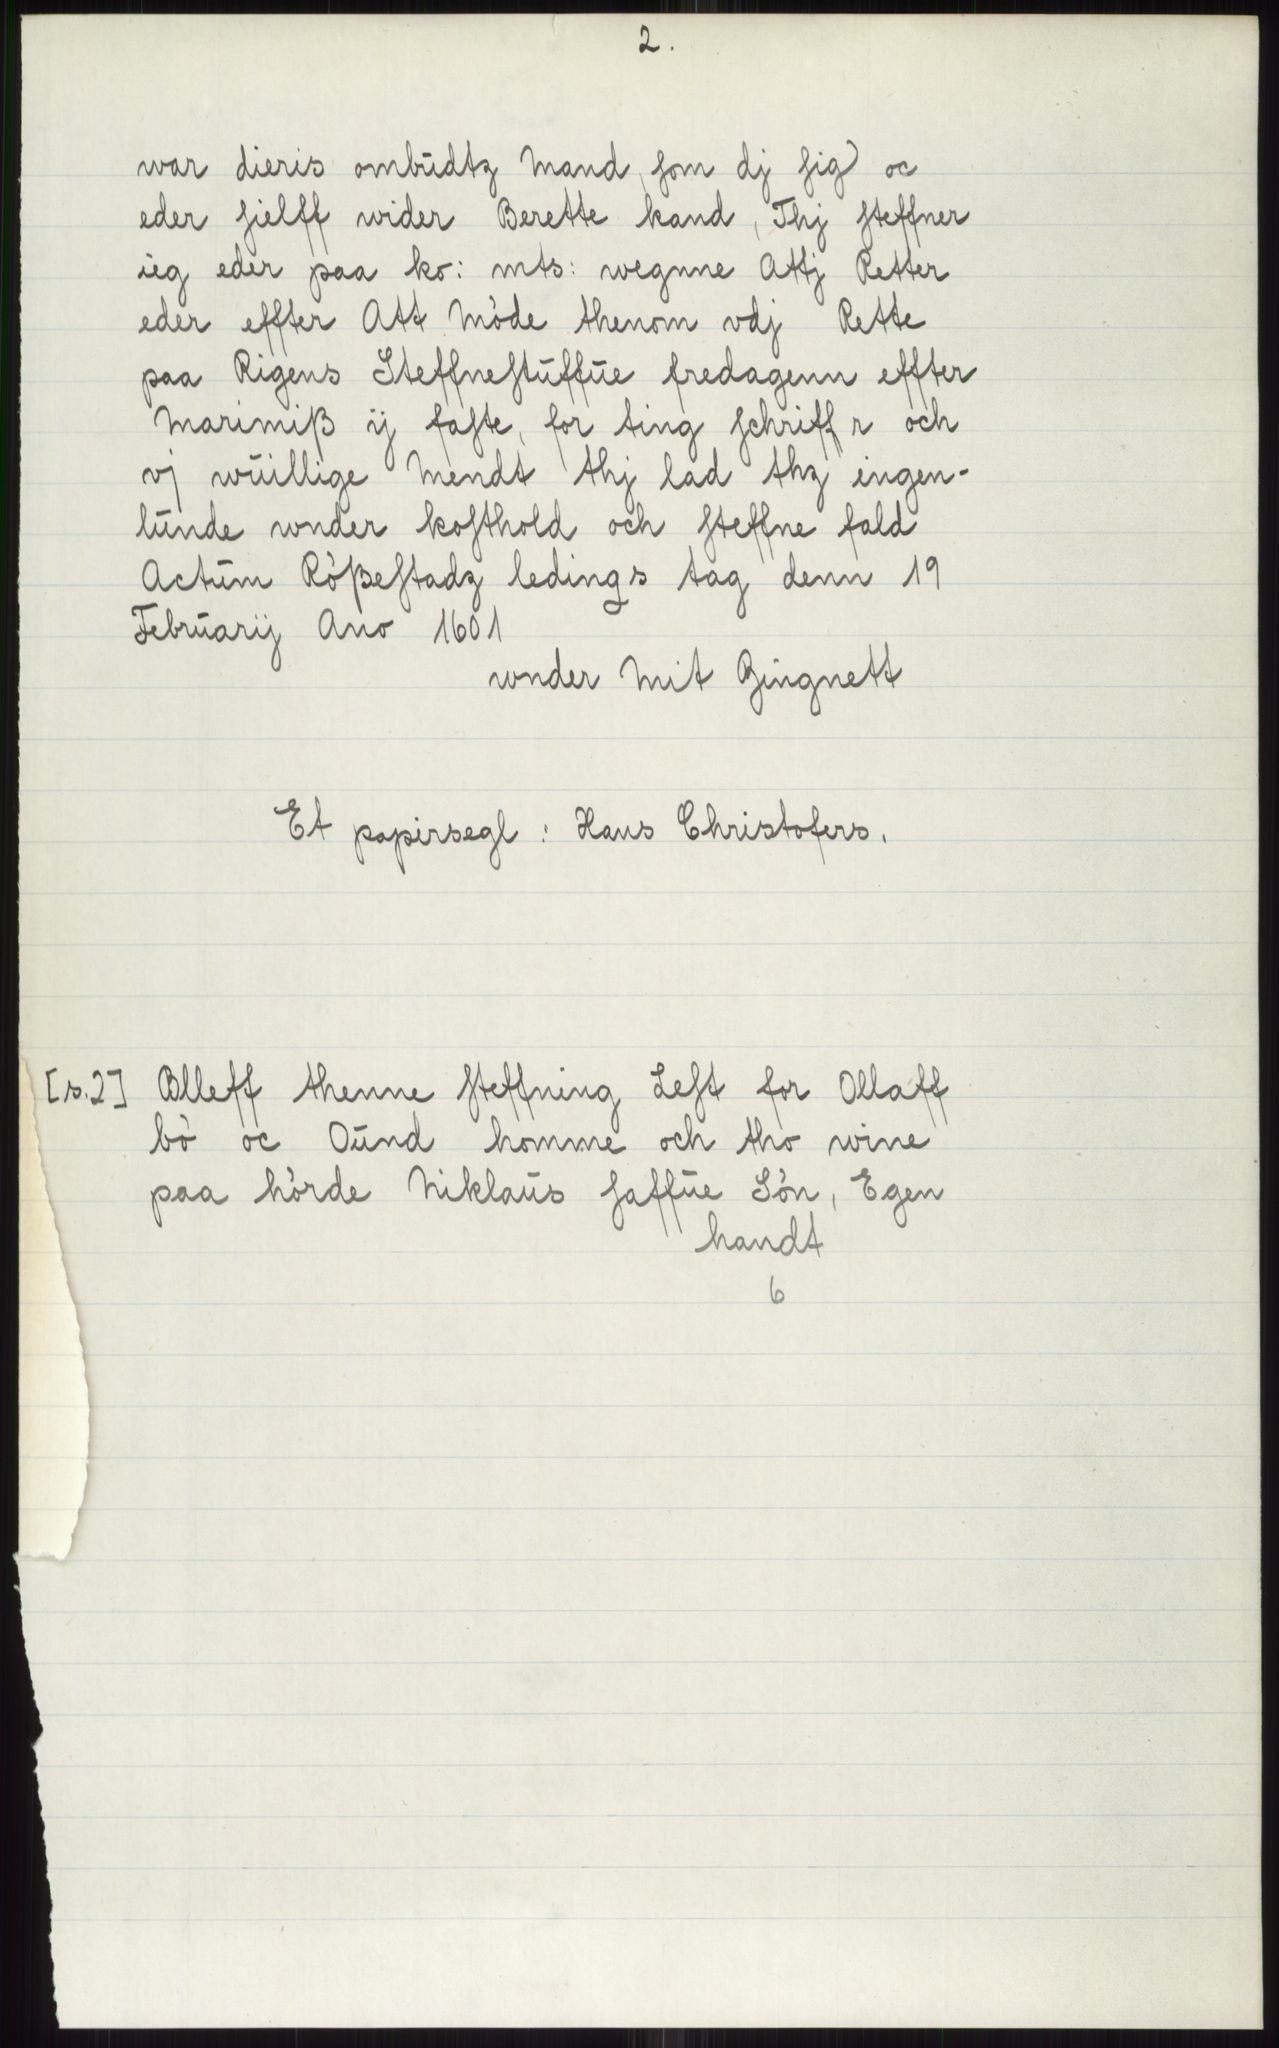 2.
war dieris ombudtz Mand, som dj sig oc
eder sielff wider Berette kand, Thj steffner
ieg eder paa ko: mts: wegnne Attj Retter
eder effter Att Møde thenom vdj Rette
paa Rigens Steffnestuffue fredagenn effter
Marimiß ij faste, for ting schriff r och
vj wuillige Mendt thj lad thz ingen-
lunde wnder kosthold och steffne fald
Actum Rößestadz ledings tag denn 19
Februarij Ano 1601
wnder Mit Zingnett
Et papirsegl : Hans Christofers.
[s.2] Blleff thenne steffning Lest for Ollaff
bö oc Ound homme och tho wine
paa hörde Niklaus saffue Sön, Egen
handt
6